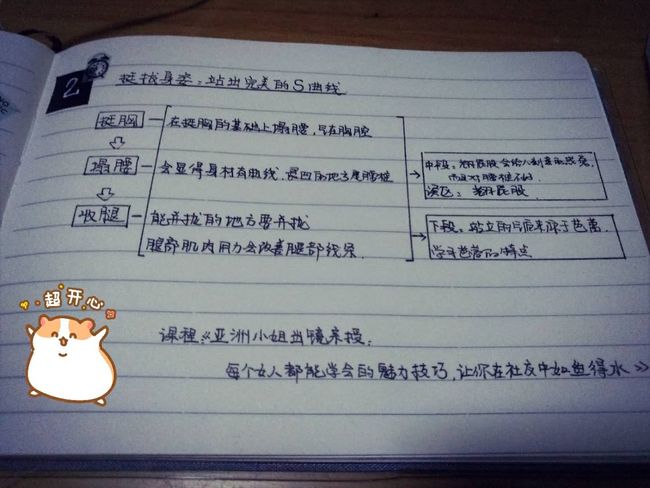 2
挺拔身姿：站出完美的S曲线
挺胸
在挺胸的基础上塌腰，气在胸腔
塌腰
会显得身材有曲线，最凹的地方是腰椎
收腿
能并拢的地方要并拢
腿部肌肉用力会改善腿部线条
中段：翘屁股会给人刻意的感觉，
而且对腰椎不好
误区：翘屁股
下段：站立的气质来源于芭蕾，
学习芭蕾的特点
超开心
课程《亚洲小姐出镜亲授：
每个女人都能学会的魅力技巧，让你在社交中如鱼得水》